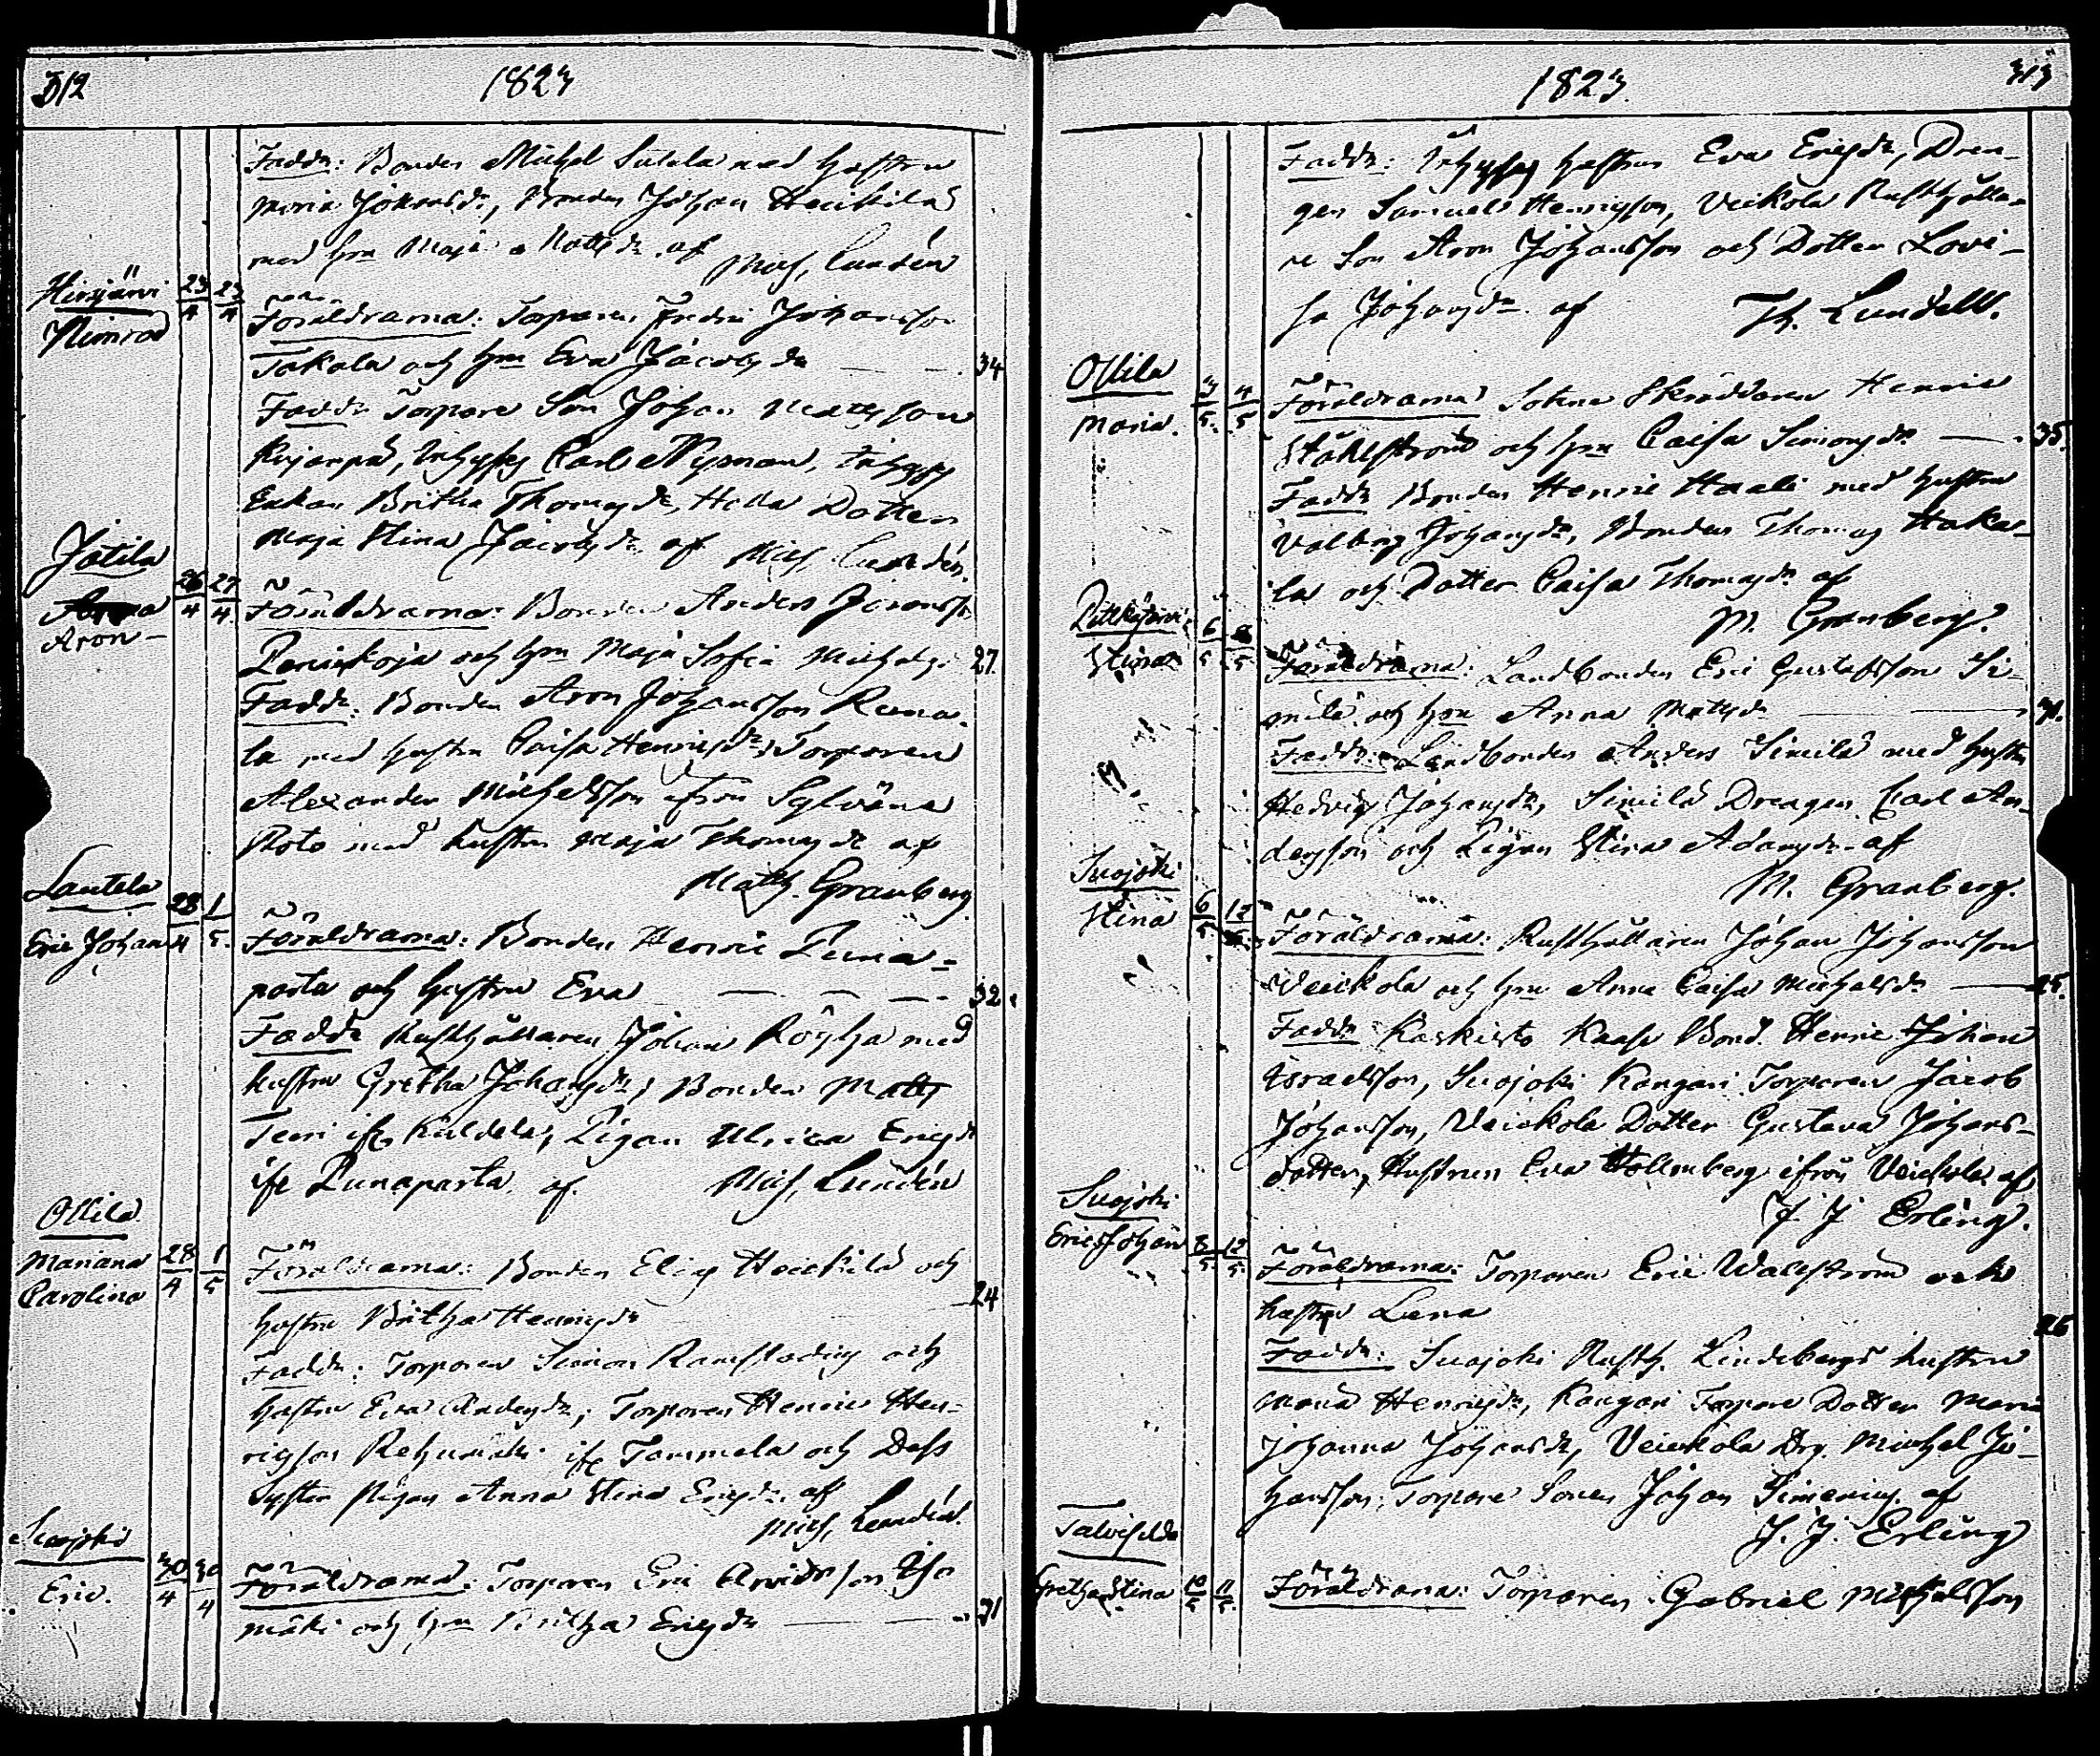 312
1823
Fadd:r Bonden Michel Sukula med hustru
Maria Johansdr, Bonden Johan Heickilä
med hm Maja Mattsdr af Mich. Lundén
Hirsjärvi
Nimrod
23/4 23/4
Föräldrarna: Torparen Fredric Johansson
Takala och hm Eva Jacobsdr 34
Fadd:r Torpare Son Johan Mattsson
Kujanpä, Inhyses Carl Nyman, Inhyses
Enkan Britha Thomasdr, Dotter
Maja Stina Jacobsdr af Mich. Lundén.
Jätila
Aron
26/4 27/4
Föräldrarna: Bonden Anders
och hm Maja Sofia Michelsd. 27.
Fadd:r: Bonden Aron Johansson
la med hustru Caisa Henricsdr, Torparen
Alexander Michelsson ifrån
med hustru Maja Thomasdr af
Matths. Granberg
Lautela
Eric Johan
28/4 1/5
Föräldrarna: Bonden Henric Puna=
parta och hustru Eva 32.
Fadd:r Rusthållaren Johan med
hustru Gretha Johansdr, Bonden Matts
ifr. Kuldela, Pigan Ulrica Ericsdr
ifr Punaparta af Mich. Lundén
Ollila
Mariana
Carolina
28/4 1/5
Föräldrarna: Bonden Elias Heickilä och
hustru Britha Henricsdr 24
Fadd:r: Torparen Simon och
hustru Eva Andersdr; Torparen Henric Hen=
ricsson ifr Tammela och Dess
Syster Pigan Anna Stina Ericsdr af
Mich. Lundén.
Suojoki
Eric.
30/4 30/4
Föräldrarna: Torparen Eric Arvidsson Iso
mäki och hm Britha Ericsdr 31
1823.
313
Fadd:r: Inhyses hustrun Eva Ericsdr, Dren-
gen Samuel Henricsson, Veikola Rusthålla-
re Son Aron Johansson och Dotter Lovi-
sa Johansdr af Th. Lundell.
Ollila
Maria.
3/5 4/5
Föräldrarna Sokne Skräddaren Henric
Ståhlström och hm Caisa Simonsdr 35.
Fadd:r Bonden Henric Haali med hustru
Valborg Johansdr, Bonden Thomas Haka-
la och Dotter Caisa Thomasdr af
M. Granberg.
Stina
6/5
Föräldrarna: Landbonden Eric Gustafsson Si-
milä och hm Anna Mattsdr
Fadd:r Landbonden Anders Similä med hustru
Hedvig Johansdr, Similä Drengen Carl An-
dersson och Pigan Stina Adamsdr af
M. Granberg.
Suojoki
Stina
6/5 12/5
Föräldrarna: Rusthållaren Johan Johansson
Veickola och hm Anna Caisa Michelsdr 25.
Fadd:r Kaskisto Bond. Henric Johan
Israelsson, Suojoki Kangari Torparen Jacob
Johansson, Veickola Dotter Gustava Johans-
dotter, Hustrun Eva Hollmberg ifrån Veickola af
J. J. Erling.
Suojoki
Eric Johan
8/5 12/5
Föräldrarna: Torparen Eric Wallström och
hustru Lena 26
Fadd:r: Suojoki Rusth. Lindebergs hustru
Maria Henricsdr, Kangari Torpare Dotter Maria
Johanna Johansdr, Veickola Drg. Michel Jo-
hansson, Torpare Sonen Johan af
J. J. Erling
Gretha Stina
10/5 11/5
Föräldrarna: Torparen Gabriel Michelsson